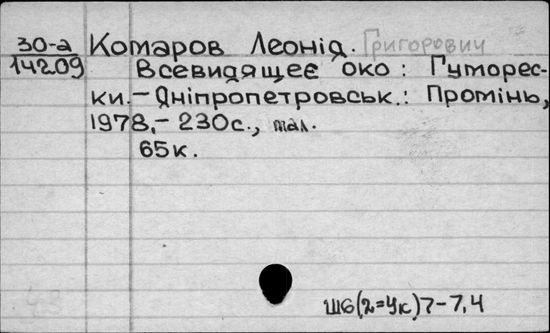 30-а Комаров Леонід. Григорович
14209 Всевидящеє око: Гуморес-
ки.- Дніпропетровськ.: Промінь,
1978.- 230с., мал.
65к.
Ш6(2=Ук)7-7,4